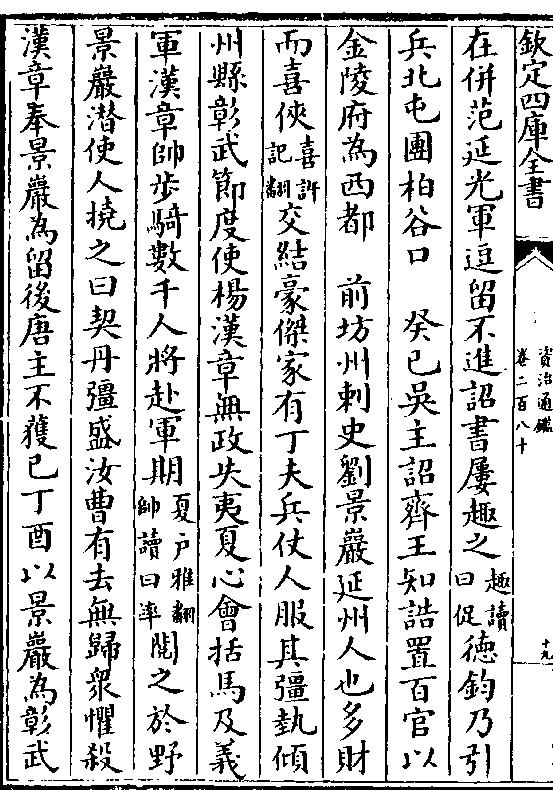 欽定四庫全書
資治通鑑
卷二百八十
十九
在併范延光軍逗留不進詔書屢趣之趣讀曰促德鈞乃引
兵北屯團柏谷口 癸巳吳主詔齊王知誥置百官以
金陵府為西都 前坊州刺史劉景巖延州人也多財
而喜俠喜許記翻交結豪傑家有丁夫兵仗人服其彊埶傾
州縣彰武節度使楊漢章無政失夷夏心會括馬及義
軍漢章帥步騎數千人將赴軍期夏户雅翻帥讀曰率閲之於野
景巖潛使人撓之曰契丹彊盛汝曹有去無歸衆懼殺
漢章奉景巖為留後唐主不獲已丁酉以景巖為彰武